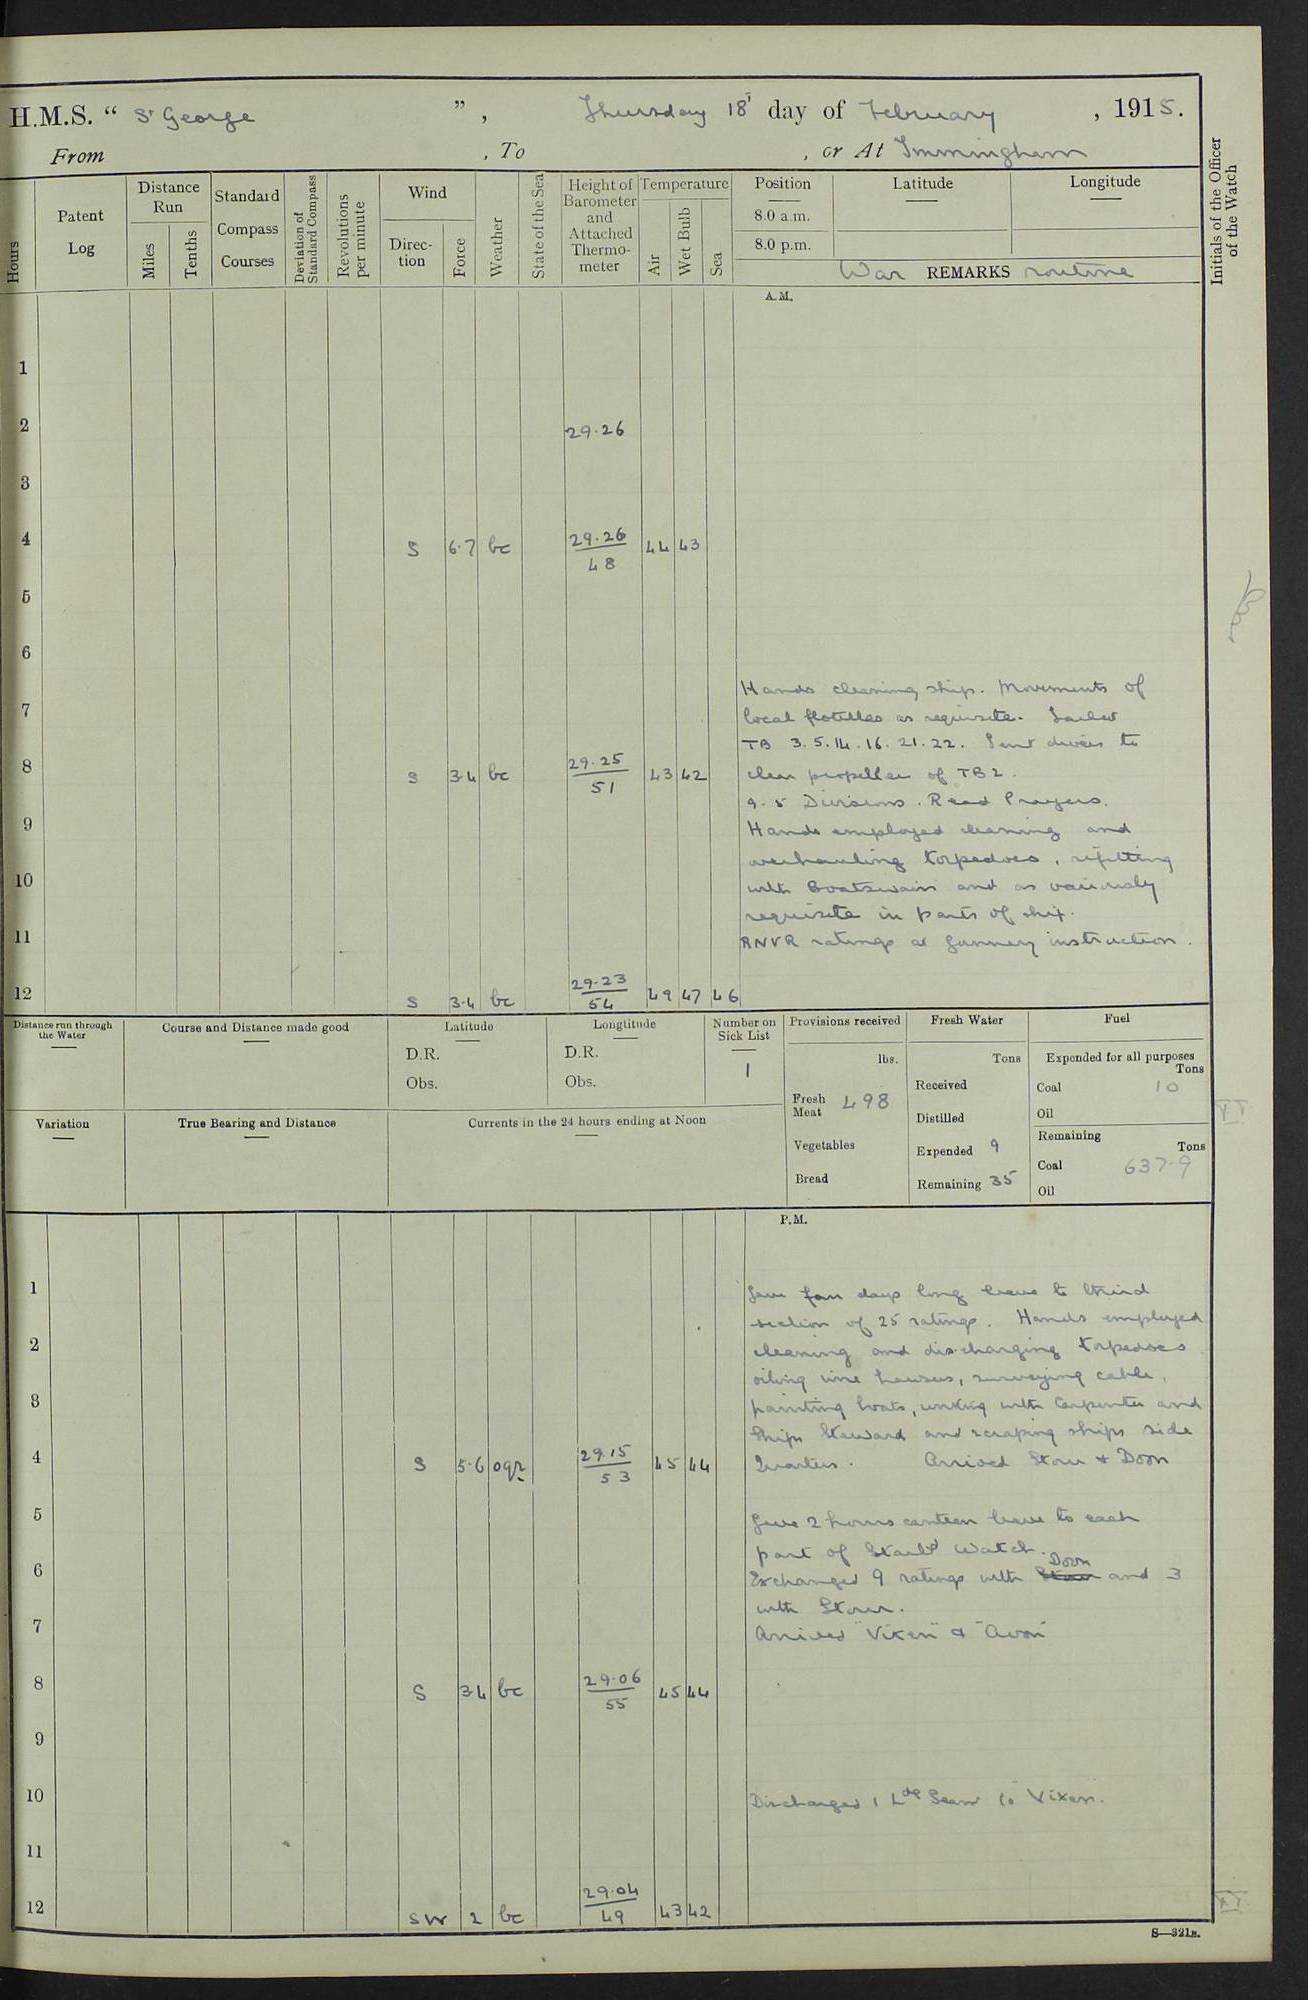 H.M.S. “ St George ”, Thursday 18th day of February , 1915.
From , To , or At Immingham
Hours
Patent Log
Distance Run
Miles
Tenths
Standard Compass Courses
Deviation of Standard Compass
Revolutions per minute
Wind
Direc-tion
Force
Weather
State of the Sea
Height of Barometer and Attached Thermo-meter
Temperature
Air
Wet Bulb
Sea
Position
Latitude
Longitude
8.0 a.m.
8.0 p.m.
War REMARKS routine
Initials of the Officer of the Watch
A.M.
1
2 29.26
3
4 S 6.7 bc 29.26 44 43
48
5
6
Hands cleaning ship. Movements of
7
local flotillas as requisite. Sailed
TB 3. 5. 14. 16. 21. 22. Sent divers to
8 S 3.4 bc 29.25 43 42
51
clear propeller of TB 2.
9.5 Divisions. Read Prayers.
9
Hands employed cleaning and
overhauling torpedoes, refitting
10
with Boatswain and as variously
requisite in parts of ship.
11
RNVR ratings at Gunnery instruction.
12 S 3.4 bc 29.23 49 47 46
54
Distance run through the Water
Course and Distance made good
Latitude
D.R.
Obs.
Longtitude
D.R.
Obs.
Number on Sick List
1
Provisions received
lbs.
Fresh Meat 498
Vegetables
Bread
Fresh Water
Tons
Received
Distilled
Expended 9
Remaining 35
Fuel
Expended for all purposes
Tons
Coal 10
Oil
Remaining
Tons
Coal 637.9
Oil
Variation
True Bearing and Distance
Currents in the 24 hours ending at Noon
P.M.
1
days long leave to third
section of 25 ratings. Hands employed
2
cleaning and discharging torpedoes
oiling wire hawsers, surveying cable,
3
painting boats, working with Carpenter and
Ships Steward and scraping ships side
4 S 5.6 oqr 29.15 45 44
53
Quarters. Arrived Stour & Doon
5
Gave 2 hours canteen leave to each
part of Starbd Watch.
6
Exchanged 9 ratings with Stour Doon and 3
with Stour.
7
Arrived "Vixen" & "Avon"
8 S 3.4 bc 29.06 45 44
55
9
10
Discharged 1 Ldg Seam to Vixen.
11
12 SW 2 bc 29.04 43 42
49
S—321B.